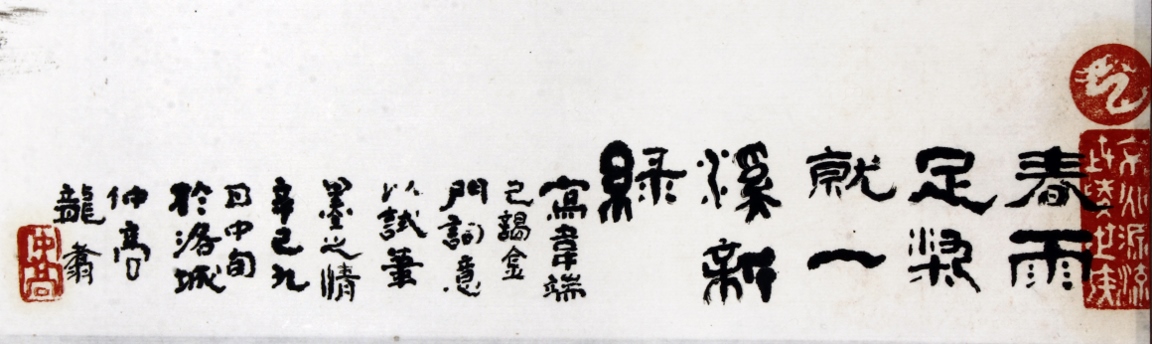 春雨
足染
就一
溪新
綠
寫韋端
己謁金
門詞意
以試筆
墨之情
辛巳九
月中旬
於洛城
仲高
龍
仲高